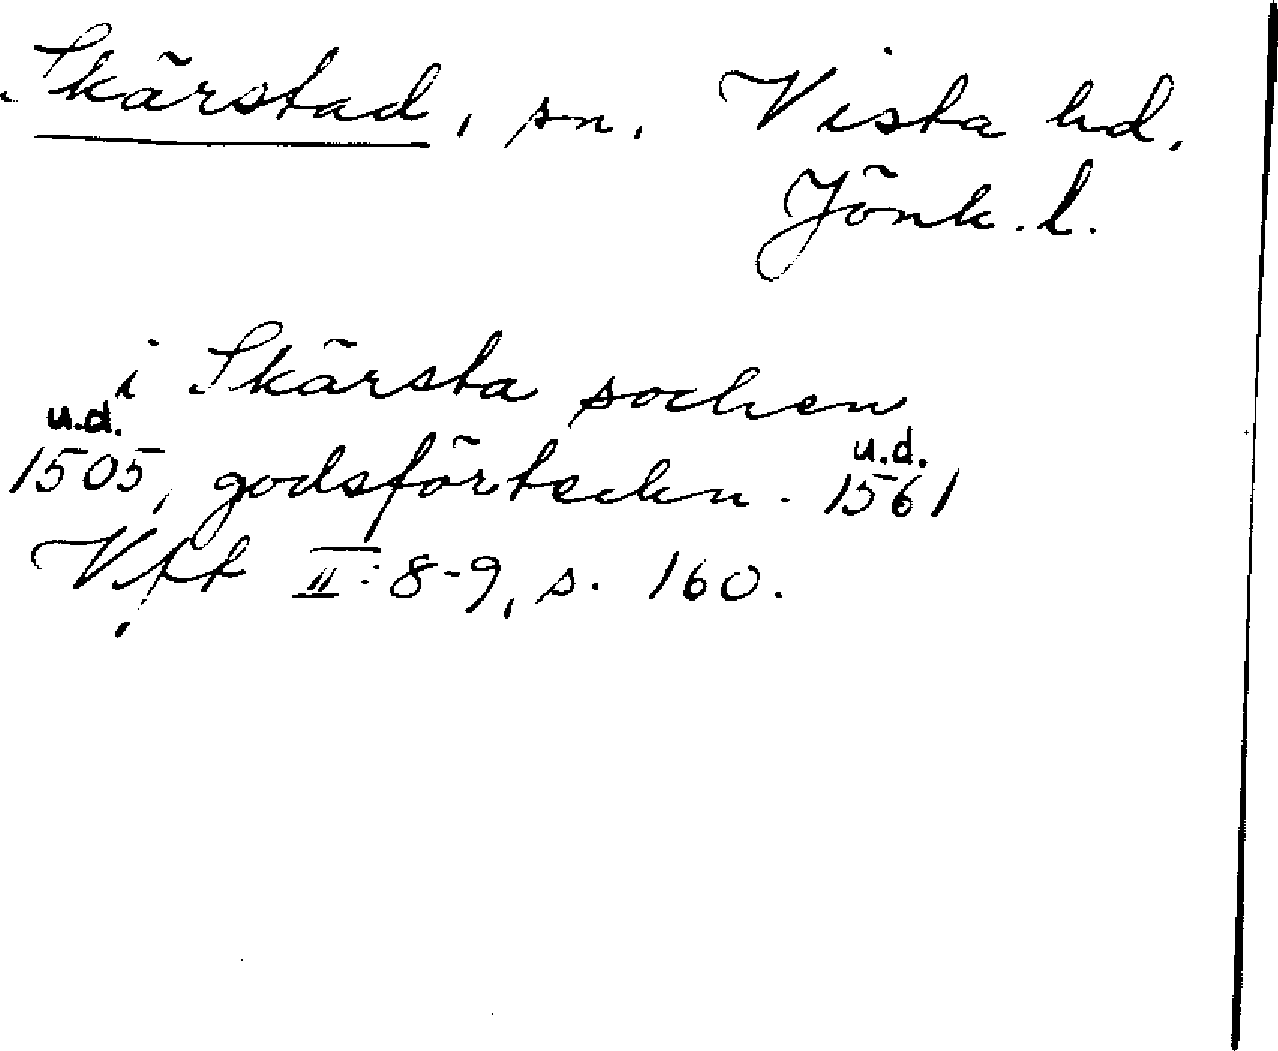 Skärstad, sn. Vista hd.
Jönk. l.
i Skärsta sochen
u.d. u.d.
1505, godsförteckn. 1561
Vft II:8-9, s. 160.